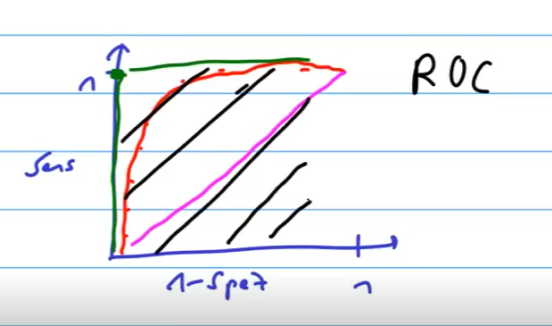 ROC
1
Sens
1-Spez
1